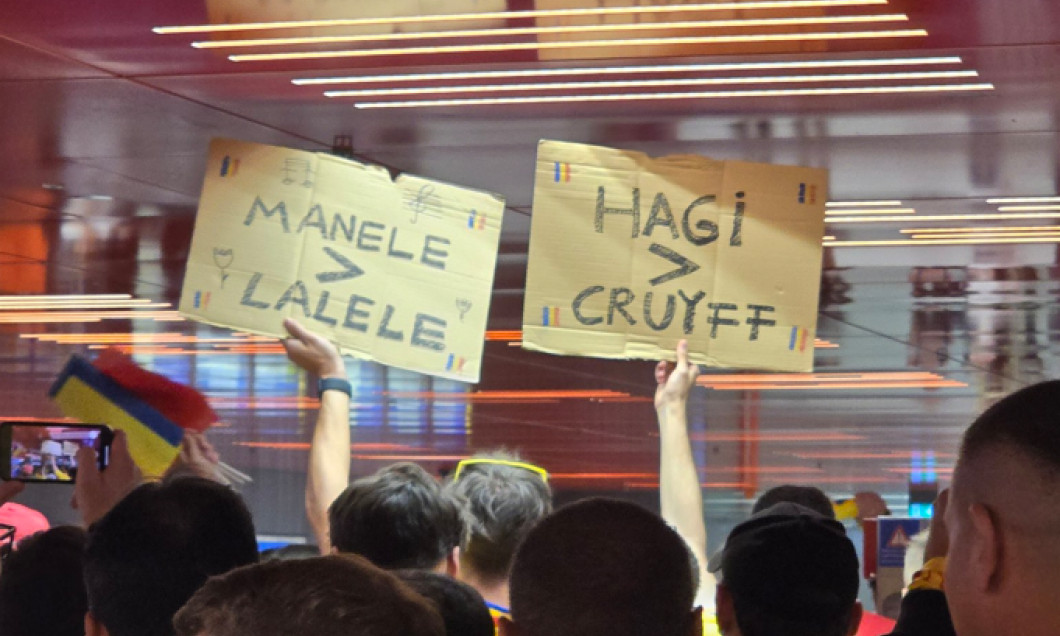 MANELE
>
LALELE
HAGi
>
CRUYFF